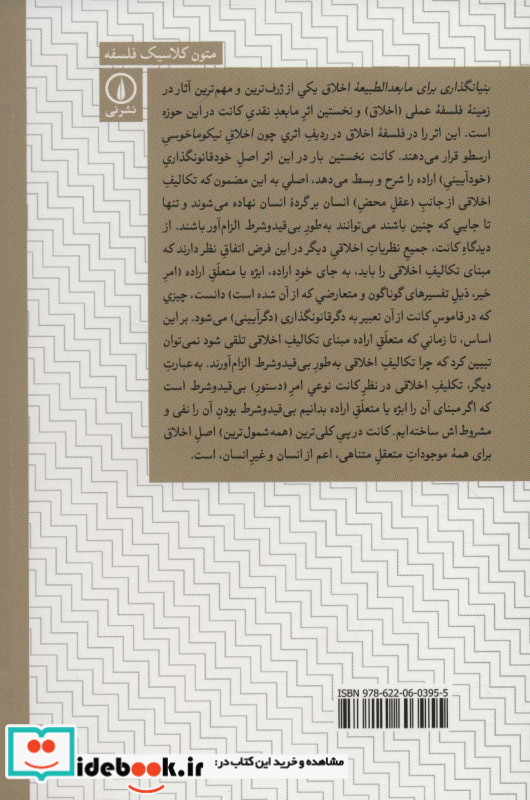 متون کلاسیک فلسفه
نشرنی
بنیانگذاری برای مابعدالطبیعهٔ اخلاق یکی از ژرف‌ترین و مهم‌ترین آثار در
زمینهٔ فلسفهٔ عملی (اخلاق) و نخستین اثرِ مابعدِ نقدیِ کانت در این حوزه
است. این اثر را در فلسفهٔ اخلاق در ردیفِ اثری چون اخلاقِ نیکوماخوسیِ
ارسطو قرار می‌دهند. کانت نخستین بار در این اثر اصلِ خودقانونگذاریِ
(خودآیینیِ) اراده را شرح و بسط می‌دهد، اصلی به این مضمون که تکالیفِ
اخلاقی از جانبِ (عقلِ محضِ) انسان بر گُردهٔ انسان نهاده می‌شوند و تنها
تا جایی که چنین باشند می‌توانند به‌طورِ بی‌قیدوشرط الزام‌آور باشند. از
دیدگاهِ کانت، جمیعِ نظریاتِ اخلاقیِ دیگر در این فرض اتفاقِ نظر دارند که
مبنای تکالیفِ اخلاقی را باید، به جای خودِ اراده، ابژه یا متعلَّقِ اراده (امرِ
خیر، ذیلِ تفسیرهای گوناگون و متعارضی که از آن شده است) دانست، چیزی
که در قاموسِ کانت از آن تعبیر به دگرقانونگذاری (دگرآیینی) می‌شود. بر این
اساس، تا زمانی که متعلَّقِ اراده مبنای تکالیفِ اخلاقی تلقی شود نمی‌توان
تبیین کرد که چرا تکالیفِ اخلاقی به‌طورِ بی‌قیدوشرط الزام‌آورند. به عبارتِ
دیگر، تکلیفِ اخلاقی در نظرِ کانت نوعی امرِ (دستورِ) بی‌قیدوشرط است
که اگر مبنای آن را ابژه یا متعلَّقِ اراده بدانیم بی‌قیدوشرط بودنِ آن را نفی و
مشروط‌اش ساخته‌ایم. کانت در پیِ کلی‌ترین (همه‌شمول‌ترین) اصلِ اخلاق
برای همهٔ موجوداتِ متعقلِ متناهی، اعم از انسان و غیرِ انسان، است.
ISBN 978-622-06-0395-5
مشاهده و خرید این کتاب در:
idebook.ir